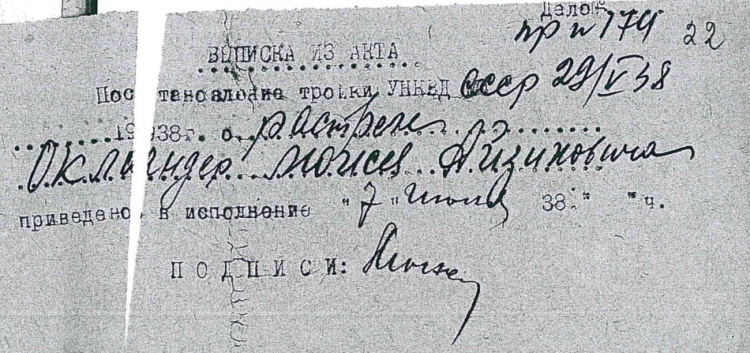 Дело №
пр и 174 22
ВЫПИСКА ИЗ АКТА
Постановление тройки УНКВД СССР 29/V 38
1938г. о расстреле
Окландер Моисея Айзиковича
приведено в исполнение "7" июня 38." "ч.
ПОДПИСИ: